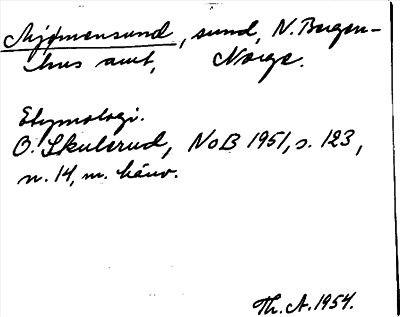 Mjømensund, sund, N. Bergen-
hus amt, Norge.
Etymologi.
O. Skulerud, NoB 1951, s. 123,
n. 14, m. hänv.
Th. A. 1954.